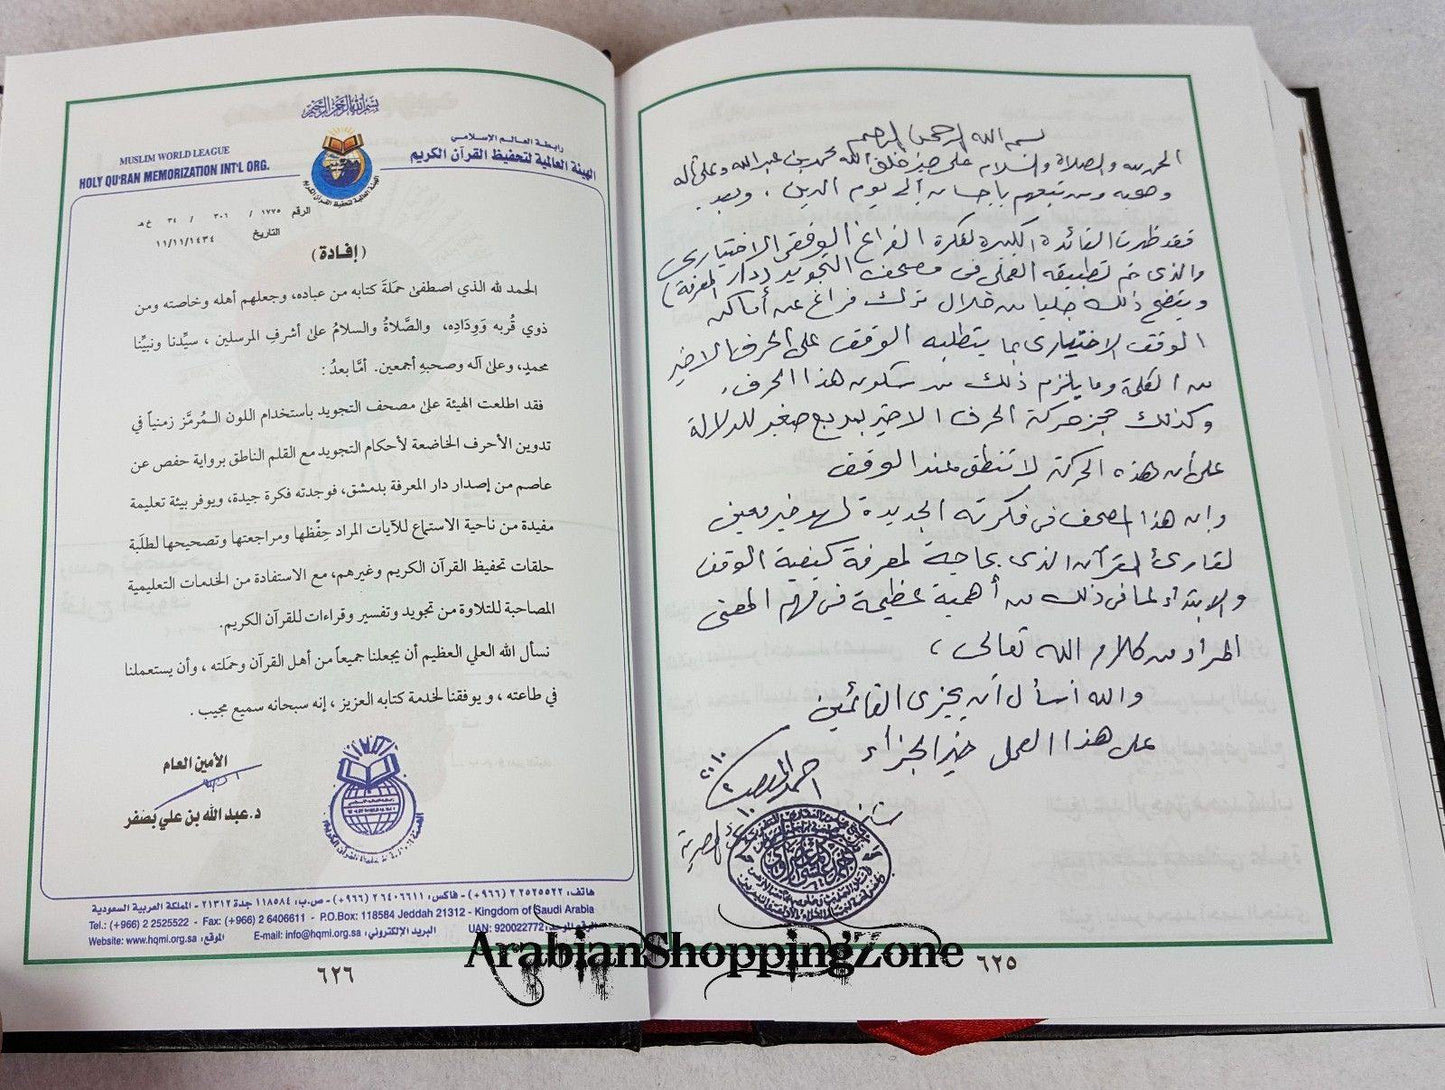 بسم الله الرحمن الرحيم
الحمد لله والصلاة والسلام على خير خلق الله محمد بن عبد الله وعلى آله
وصحبه ومن تبعهم بإحسان إلى يوم الدين، وبعد.
فقد ظهرت الفائدة الكبيرة لفكرة الفراغ الوقفي الاختياري
والذي تم تطبيقه العملي في مصحف التجويد (دار المعرفة)
ويتضح ذلك جليا من خلال ترك فراغ عند أماكن
الوقف الاختياري بما يتطلبه الوقف على الحرف الاخير
من الكلمة وما يلزم ذلك من سكون هذا الحرف.
وكذلك حجز حركة الحرف الاخير بمربع صغير للدلالة
على أن هذه الحركة لا تنطق عند الوقف
وإن هذا المصحف في فكرته الجديدة لهو خير معين
لقارئ القرآن الذي بحاجة لمعرفة كيفية الوقف
والابتداء لما في ذلك من أهمية عظيمة في فهم المعنى
المراد من كلام الله تعالى،
والله أسأل أن يجزي القائمين
على هذا العمل خير الجزاء
٦٢٥
بسم الله الرحمن الرحيم
رابطة العالم الإسلامي
الهيئة العالمية لتحفيظ القرآن الكريم
MUSLIM WORLD LEAGUE
HOLY QU'RAN MEMORIZATION INT'L ORG.
الرقم ١٧٧٥ / ٣٠١ / ٣٤ خ هـ
التاريخ ١١/١١/١٤٣٤
(إفادة)
الحمد لله الذي اصطفى حمَلَةَ كتابه من عباده، وجعلهم أهله وخاصته ومن
ذوي قُربه وَوِدَادِه، والصَّلاةُ والسلامُ على أشرفِ المرسلين، سيِّدنا ونبيِّنا
محمدٍ، وعلى آله وصحبهِ أجمعين. أمَّا بعدُ:
فقد اطلعت الهيئة على مصحف التجويد باستخدام اللون المُرمَّز زمنياً في
تدوين الأحرف الخاضعة لأحكام التجويد مع القلم الناطق برواية حفص عن
عاصم من إصدار دار المعرفة بدمشق، فوجدته فكرة جيدة، ويوفر بيئة تعليمة
مفيدة من ناحية الاستماع للآيات المراد حِفْظها ومراجعتها وتصحيحها لطلَبة
حلقات تحفيظ القرآن الكريم وغيرهم، مع الاستفادة من الخدمات التعليمية
المصاحبة للتلاوة من تجويد وتفسير وقراءات للقرآن الكريم.
نسأل الله العلي العظيم أن يجعلنا جميعاً من أهل القرآن وحمَلته، وأن يستعملنا
في طاعته، ويوفقنا لخدمة كتابه العزيز، إنه سبحانه سميع مجيب.
الأمين العام
د. عبد الله بن علي بصفر
هاتف: ٢٥٢٥٥٢٢ ٢ (٩٦٦+) - فاكس: ٦٤٠٦٦١١ ٢ (٩٦٦+) - ص.ب: ١١٨٥٨٤ جدة ٢١٣١٢ - المملكة العربية السعودية
Tel.: (+966) 2 2525522 - Fax: (+966) 2 6406611 - P.O.Box: 118584 Jeddah 21312 - Kingdom of Saudi Arabia
Website: www.hqmi.org.sa الموقع: E-mail: info@hqmi.org.sa البريد الإلكتروني: UAN: 920022772 الرقم الموحد:
٦٢٦
ArabianShoppingZone